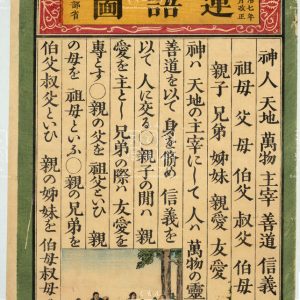 連語圖
神 人 天地 萬物 主宰 善道 信義
祖父 母 父 母 伯父 叔父
親子 兄弟 姊妹 親愛 友愛
神ハ 天地の主宰にして 人ハ 萬物の靈
善道を以て 身を脩め 信義を
以て 人に交る ○親子の間ハ 親
愛を主とし 兄弟の際ハ 友愛を
專とす ○親の父を 祖父といひ 親
の母を 祖母といふ ○親の兄弟を
伯父 叔父といひ 親の姉妹を 伯母 叔母